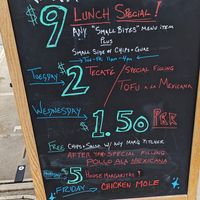 $9 LUNCH SPECIAL!
ANY "SMALL BITES" MENU ITEM
PLUS
SMALL SIDE OF CHIPS + GUAC
TUE-FRI 11AM-4PM
TUESDAY $2 TECATE / SPECIAL FILLING
TOFU A LA MEXICANA
WEDNESDAY
$1.50 PBR
FREE CHIPS + SALSA W/ ANY MARG PITCHER
AFTER 4PM SPECIAL FILLING
POLLO ALA MEXICANA
$5 HOUSE MARGARITAS!
FRIDAY CHICKEN MOLE